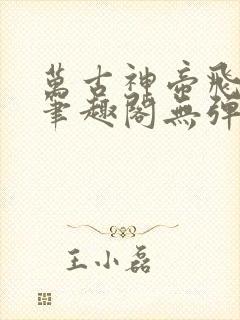 萬古神帝飛
筆趣閣無彈
王小磊